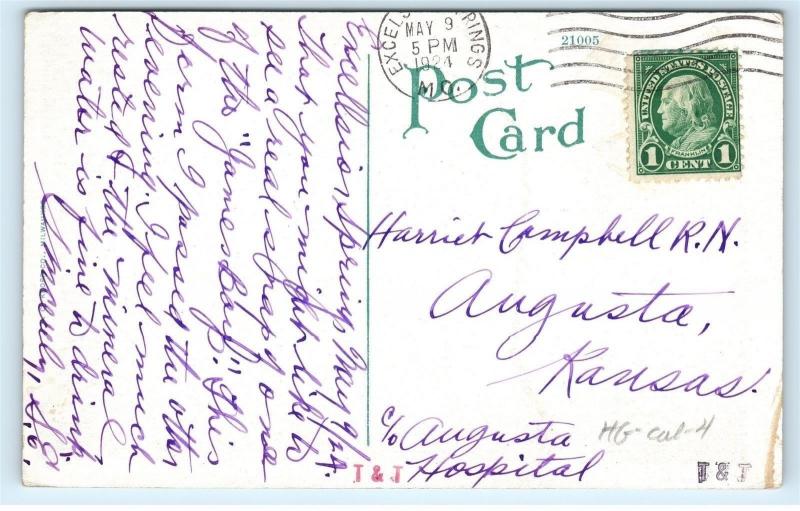 Excelsior Springs May 9/24.
Thot you might like to
see a real snap of one
of the "James Boys". This
Farm I passed the other
evening. I feel much
rested & the mineral
water is fine to drink
Sincerely,
EXCELSIOR SPRINGS
MAY 9
5 PM
1924
MO.
21005
Post
Card
UNITED STATES POSTAGE
FRANKLIN
1 CENT 1
Harriet Campbell R.N.
Augusta,
Kansas.
c/o Augusta
Hospital
HG-cal-4
J & J
J & J